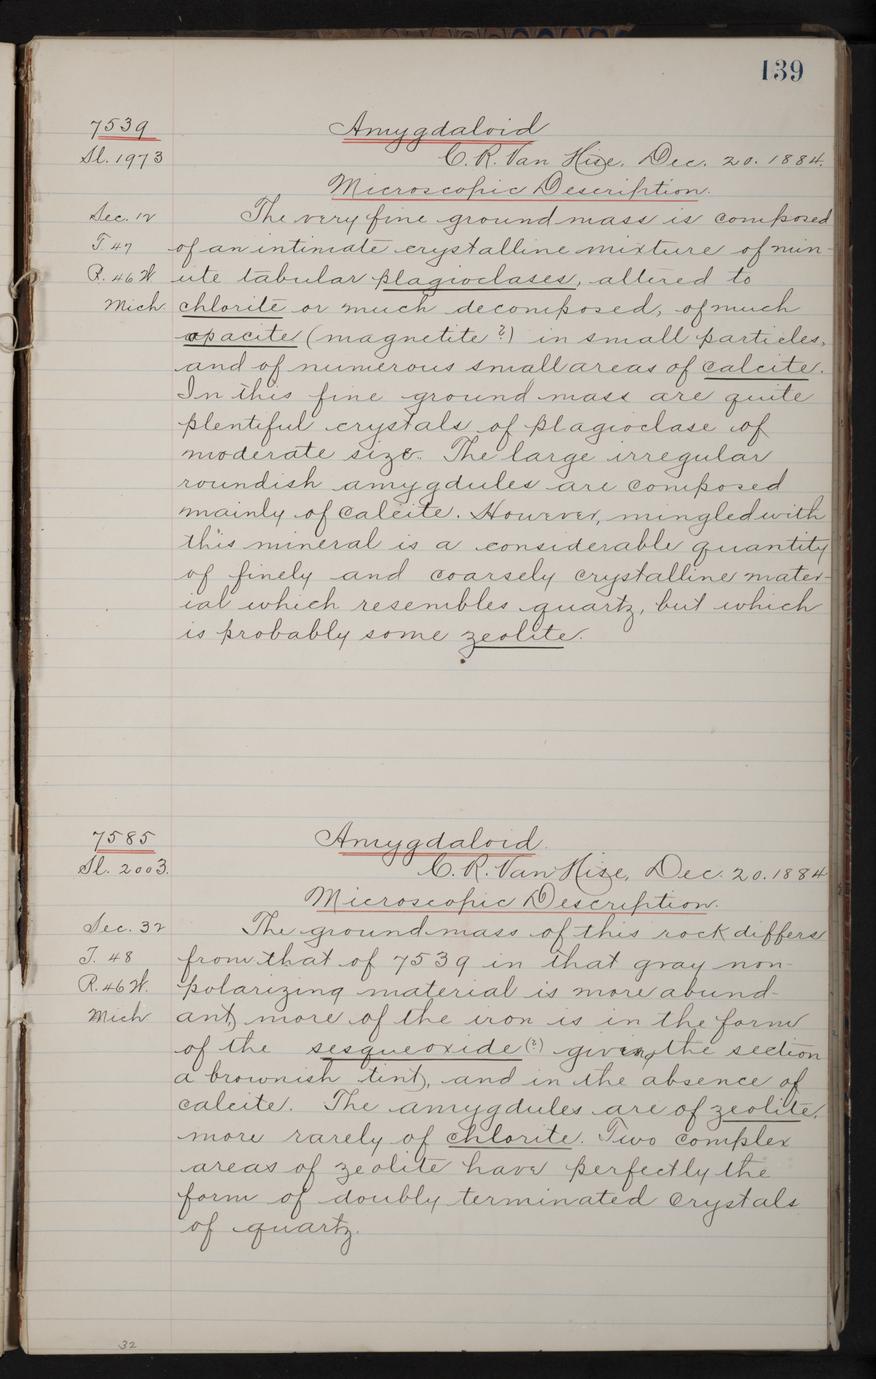 139
7539
Amygdaloid
Sl. 1973
C. R. Van Hise, Dec. 20. 1884.
Microscopic Description.
Sec. 12
The very fine ground mass is composed
T 47
of an intimate crystalline mixture of min-
R. 46 W
ute tabular plagioclases, altered to
Mich.
chlorite or much decomposed, of much
opacite (magnetite?) in small particles,
and of numerous small areas of calcite.
In this fine ground mass are quite
plentiful crystals of plagioclase of
moderate size. The large irregular
roundish amygdules are composed
mainly of calcite. However, mingled with
this mineral is a considerable quantity
of finely and coarsely crystalline mater-
ial which resembles quartz, but which
is probably some zeolite.
7585
Amygdaloid.
Sl. 2003.
C. R. Van Hise, Dec. 20. 1884
Microscopic Description.
Sec. 32
The ground mass of this rock differs
T. 48
from that of 7539 in that gray non-
R. 46 W.
polarizing material is more abund-
Mich
ant, more of the iron is in the form
of the sesqueoxide (?) giving the section
a brownish tint, and in the absence of
calcite. The amygdules are of zeolite,
more rarely of chlorite. Two complex
areas of zeolite have perfectly the
form of doubly terminated crystals
of quartz.
32